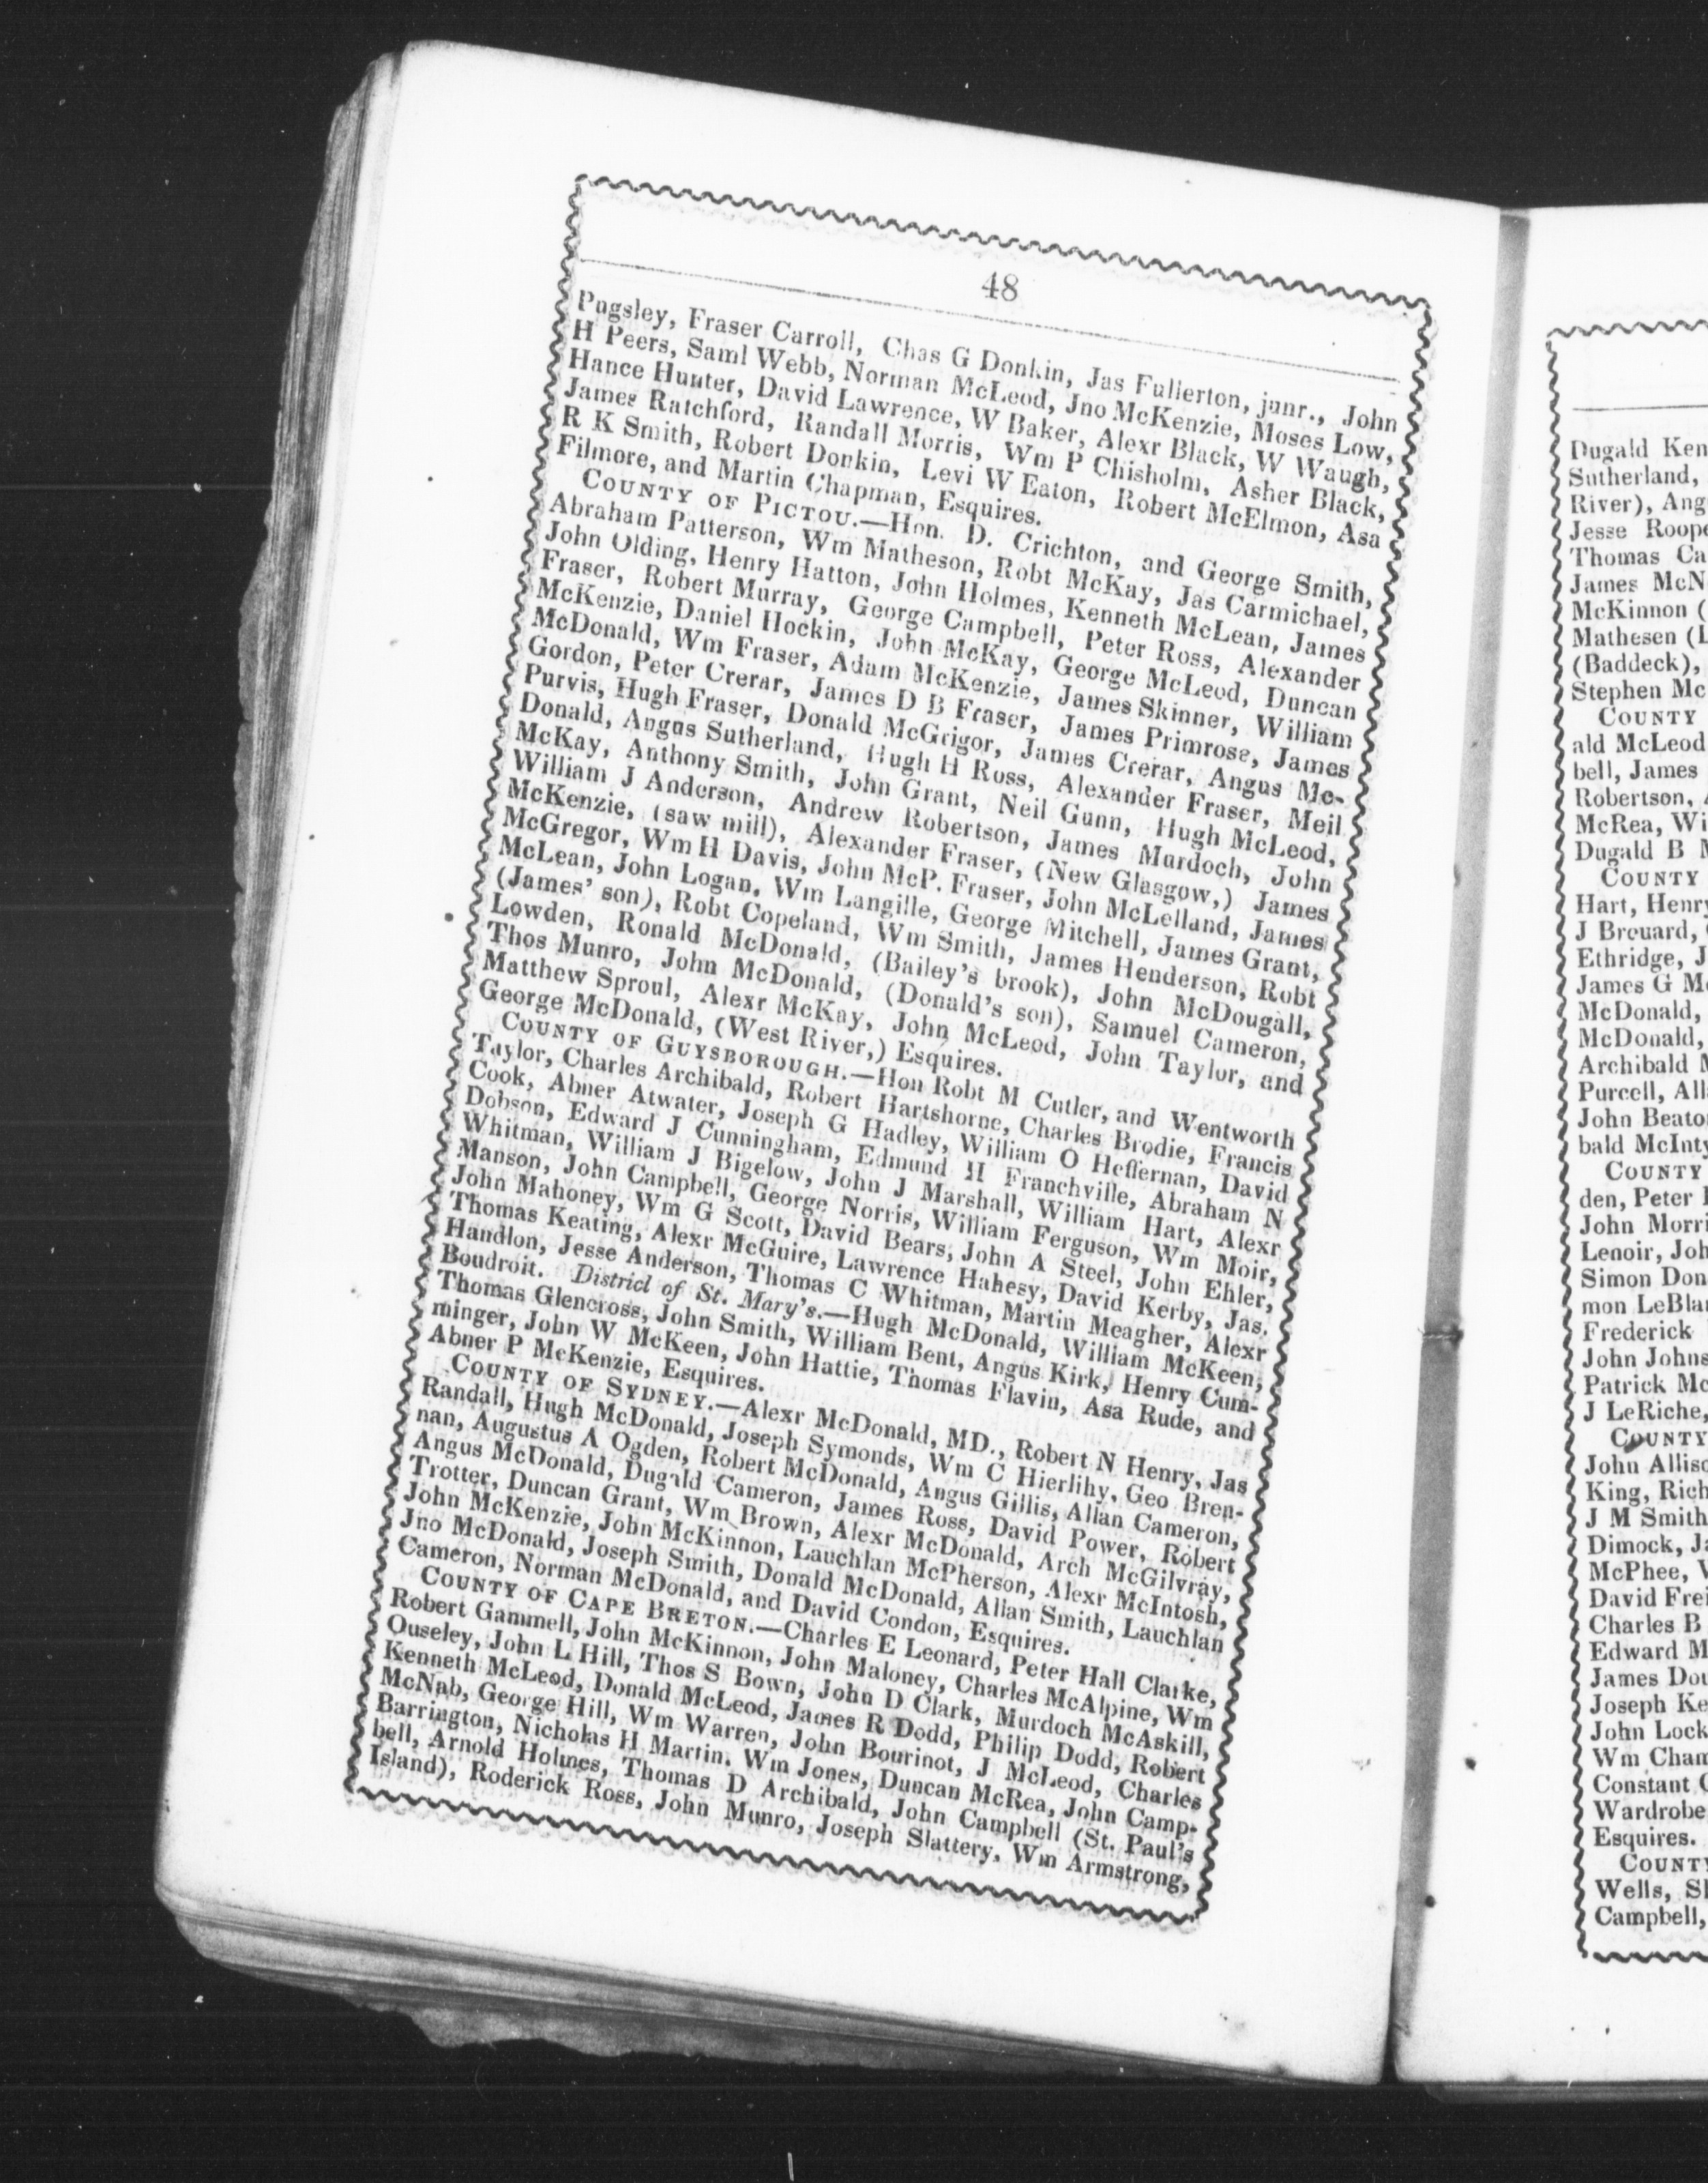 48
Pugsley, Fraser Carroll, Chas G Donkin, Jas Fullerton, junr., John
H Peers, Saml Webb, Norman McLeod, Jno McKenzie, Moses Low,
Hance Hunter, David Lawrence, W Baker, Alexr Black, W Waugh,
James Ratchford, Randall Morris, Wm P Chisholm, Asher Black,
R K Smith, Robert Donkin, Levi W Eaton, Robert McElmon, Asa
Filmore, and Martin Chapman, Esquires.
COUNTY OF PICTOU.—Hon. D. Crichton, and George Smith,
Abraham Patterson, Wm Matheson, Robt McKay, Jas Carmichael,
John Olding, Henry Hatton, John Holmes, Kenneth McLean, James
Fraser, Robert Murray, George Campbell, Peter Ross, Alexander
McKenzie, Daniel Hockin, John McKay, George McLeod, Duncan
McDonald, Wm Fraser, Adam McKenzie, James Skinner, William
Gordon, Peter Crerar, James D B Fraser, James Primrose, James
Purvis, Hugh Fraser, Donald McGrigor, James Crerar, Angus Mc-
Donald, Angus Sutherland, Hugh H Ross, Alexander Fraser, Meil
McKay, Anthony Smith, John Grant, Neil Gunn, Hugh McLeod,
William J Anderson, Andrew Robertson, James Murdoch, John
McKenzie, (saw mill), Alexander Fraser, (New Glasgow,) James
McGregor, Wm H Davis, John McP. Fraser, John McLelland, James
McLean, John Logan, Wm Langille, George Mitchell, James Grant,
(James' son), Robt Copeland, Wm Smith, James Henderson, Robt
Lowden, Ronald McDonald, (Bailey's brook), John McDougall,
Thos Munro, John McDonald, (Donald's son), Samuel Cameron,
Matthew Sproul, Alexr McKay, John McLeod, John Taylor, and
George McDonald, (West River,) Esquires.
COUNTY OF GUYSBOROUGH.—Hon Robt M Cutler, and Wentworth
Taylor, Charles Archibald, Robert Hartshorne, Charles Brodie, Francis
Cook, Abner Atwater, Joseph G Hadley, William O Heffernan, David
Dobson, Edward J Cunningham, Edmund H Franchville, Abraham N
Whitman, William J Bigelow, John J Marshall, William Hart, Alexr
Manson, John Campbell, George Norris, William Ferguson, Wm Moir,
John Mahoney, Wm G Scott, David Bears, John A Steel, John Ehler,
Thomas Keating, Alexr McGuire, Lawrence Hahesy, David Kerby, Jas.
Handlon, Jesse Anderson, Thomas C Whitman, Martin Meagher, Alexr
Boudroit. District of St. Mary's.—Hugh McDonald, William McKeen,
Thomas Glencross, John Smith, William Bent, Angus Kirk, Henry Cum-
minger, John W McKeen, John Hattie, Thomas Flavin, Asa Rude, and
Abner P McKenzie, Esquires.
COUNTY OF SYDNEY.—Alexr McDonald, MD., Robert N Henry, Jas
Randall, Hugh McDonald, Joseph Symonds, Wm C Hierlihy, Geo Bren-
nan, Augustus A Ogden, Robert McDonald, Angus Gillis, Allan Cameron,
Angus McDonald, Dugald Cameron, James Ross, David Power, Robert
Trotter, Duncan Grant, Wm Brown, Alexr McDonald, Arch McGilvray,
John McKenzie, John McKinnon, Lauchlan McPherson, Alexr McIntosh,
Jno McDonald, Joseph Smith, Donald McDonald, Allan Smith, Lauchlan
Cameron, Norman McDonald, and David Condon, Esquires.
COUNTY OF CAPE BRETON.—Charles E Leonard, Peter Hall Clarke,
Robert Gammell, John McKinnon, John Maloney, Charles McAlpine, Wm
Ouseley, John L Hill, Thos S Bown, John D Clark, Murdoch McAskill,
Kenneth McLeod, Donald McLeod, James R Dodd, Philip Dodd, Robert
McNab, George Hill, Wm Warren, John Bourinot, J McLeod, Charles
Barrington, Nicholas H Martin. Wm Jones, Duncan McRea, John Camp-
bell, Arnold Holmes, Thomas D Archibald, John Campbell (St. Paul's
Island), Roderick Ross, John Munro, Joseph Slattery, Wm Armstrong,
Dugald Ken
Sutherland,
River), Ang
Jesse Roope
Thomas Ca
James McN
McKinnon (
Mathesen (L
(Baddeck),
Stephen Mc
COUNTY
ald McLeod
bell, James
Robertson,
McRea, Wi
Dugald B M
COUNTY
Hart, Henry
J Brouard,
Ethridge, J
James G Mc
McDonald,
McDonald,
Archibald M
Purcell, All
John Beaton
bald McInty
COUNTY
den, Peter
John Morri
Lenoir, Joh
Simon Don
mon LeBlan
Frederick
John Johns
Patrick Mc
J LeRiche,
COUNTY
John Alliso
King, Rich
J M Smith
Dimock, Ja
McPhee, W
David Frei
Charles B
Edward M
James Dou
Joseph Ke
John Lock
Wm Cham
Constant C
Wardrobe
Esquires.
COUNTY
Wells, Sl
Campbell,